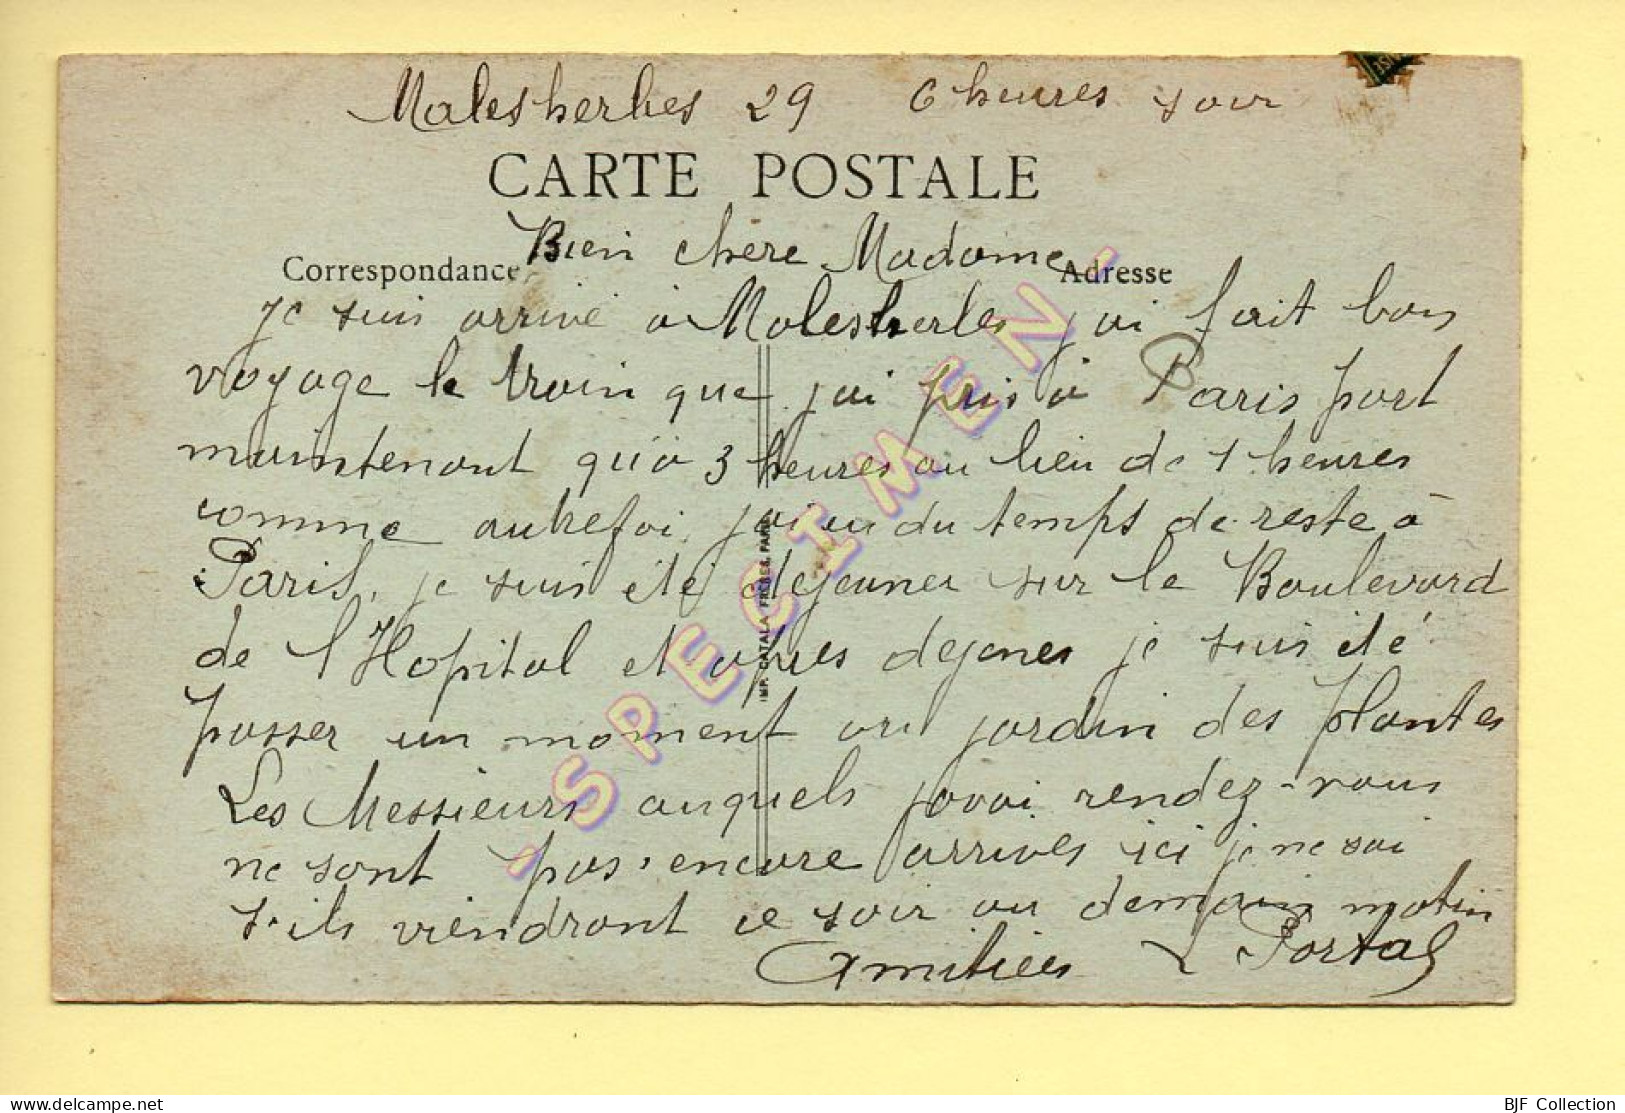 Malesherbes 29 6 heures soir
CARTE POSTALE
Bien chere Madame
Correspondance Adresse
je suis arrivé à Malesherbes j ai fait bon
voyage le train que j ai pris à Paris part
maintenant qu'a 3 heures au lieu de 1 heures
comme autrefoi j ai eu du temps de reste à
Paris. je suis été dejeuner sur le Boulevard
de l'Hopital et apres dejenes je suis été
passer un moment au jardin des plantes
Les Messieurs auquels javai rendez-vous
ne sont pas encore arrives ici je ne sai
s'ils viendront ce soir ou demain matin
Amitiees L Portal
IMP. CATALA FRÈRES, PARIS
'SPECIMEN'
Delcampe.net
BJF Collection